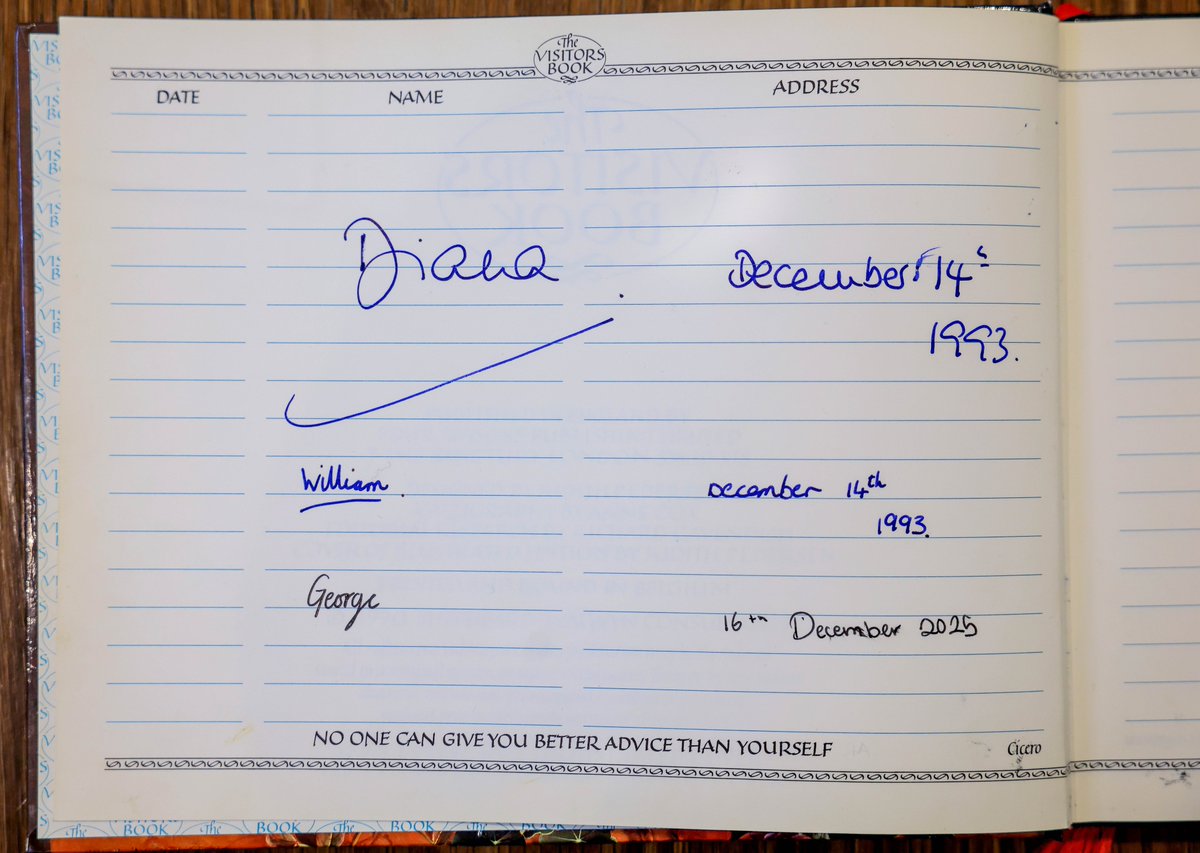 The
VISITORS
BOOK
DATE NAME ADDRESS
Diana December 14th
1993.
William. December 14th
1993.
George
16th December 2025
NO ONE CAN GIVE YOU BETTER ADVICE THAN YOURSELF Cicero
The VISITORS BOOK The BOOK The BOOK The BOOK The